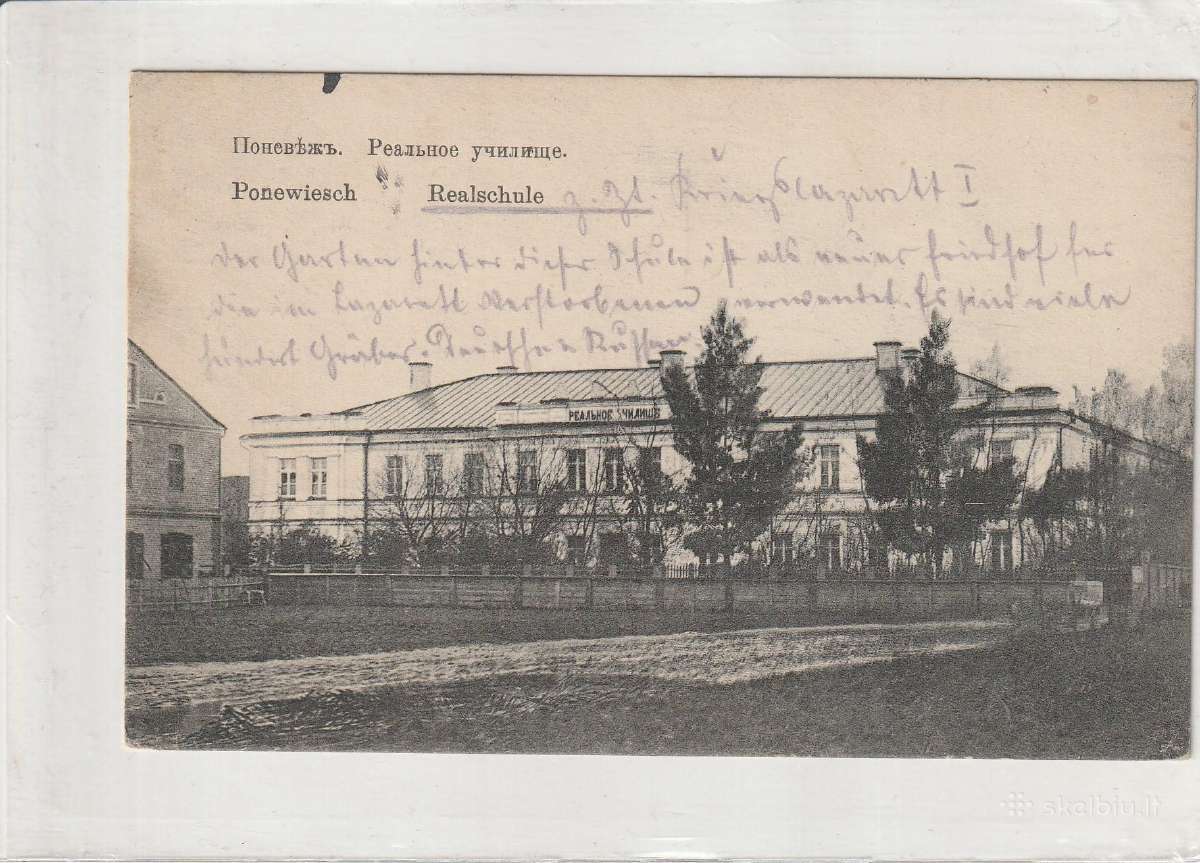 Поневѣжъ. Реальное училище.
Ponewiesch Realschule z. Zt. Kriegslazarett I
Der Garten hinter dieser Schule ist als neuer Friedhof für
die im Lazarett Verstorbenen verwendet. Es sind viele
hundert Gräber. Deutsche u Russen
РЕАЛЬНОЕ УЧИЛИЩЕ
skelbiu.lt